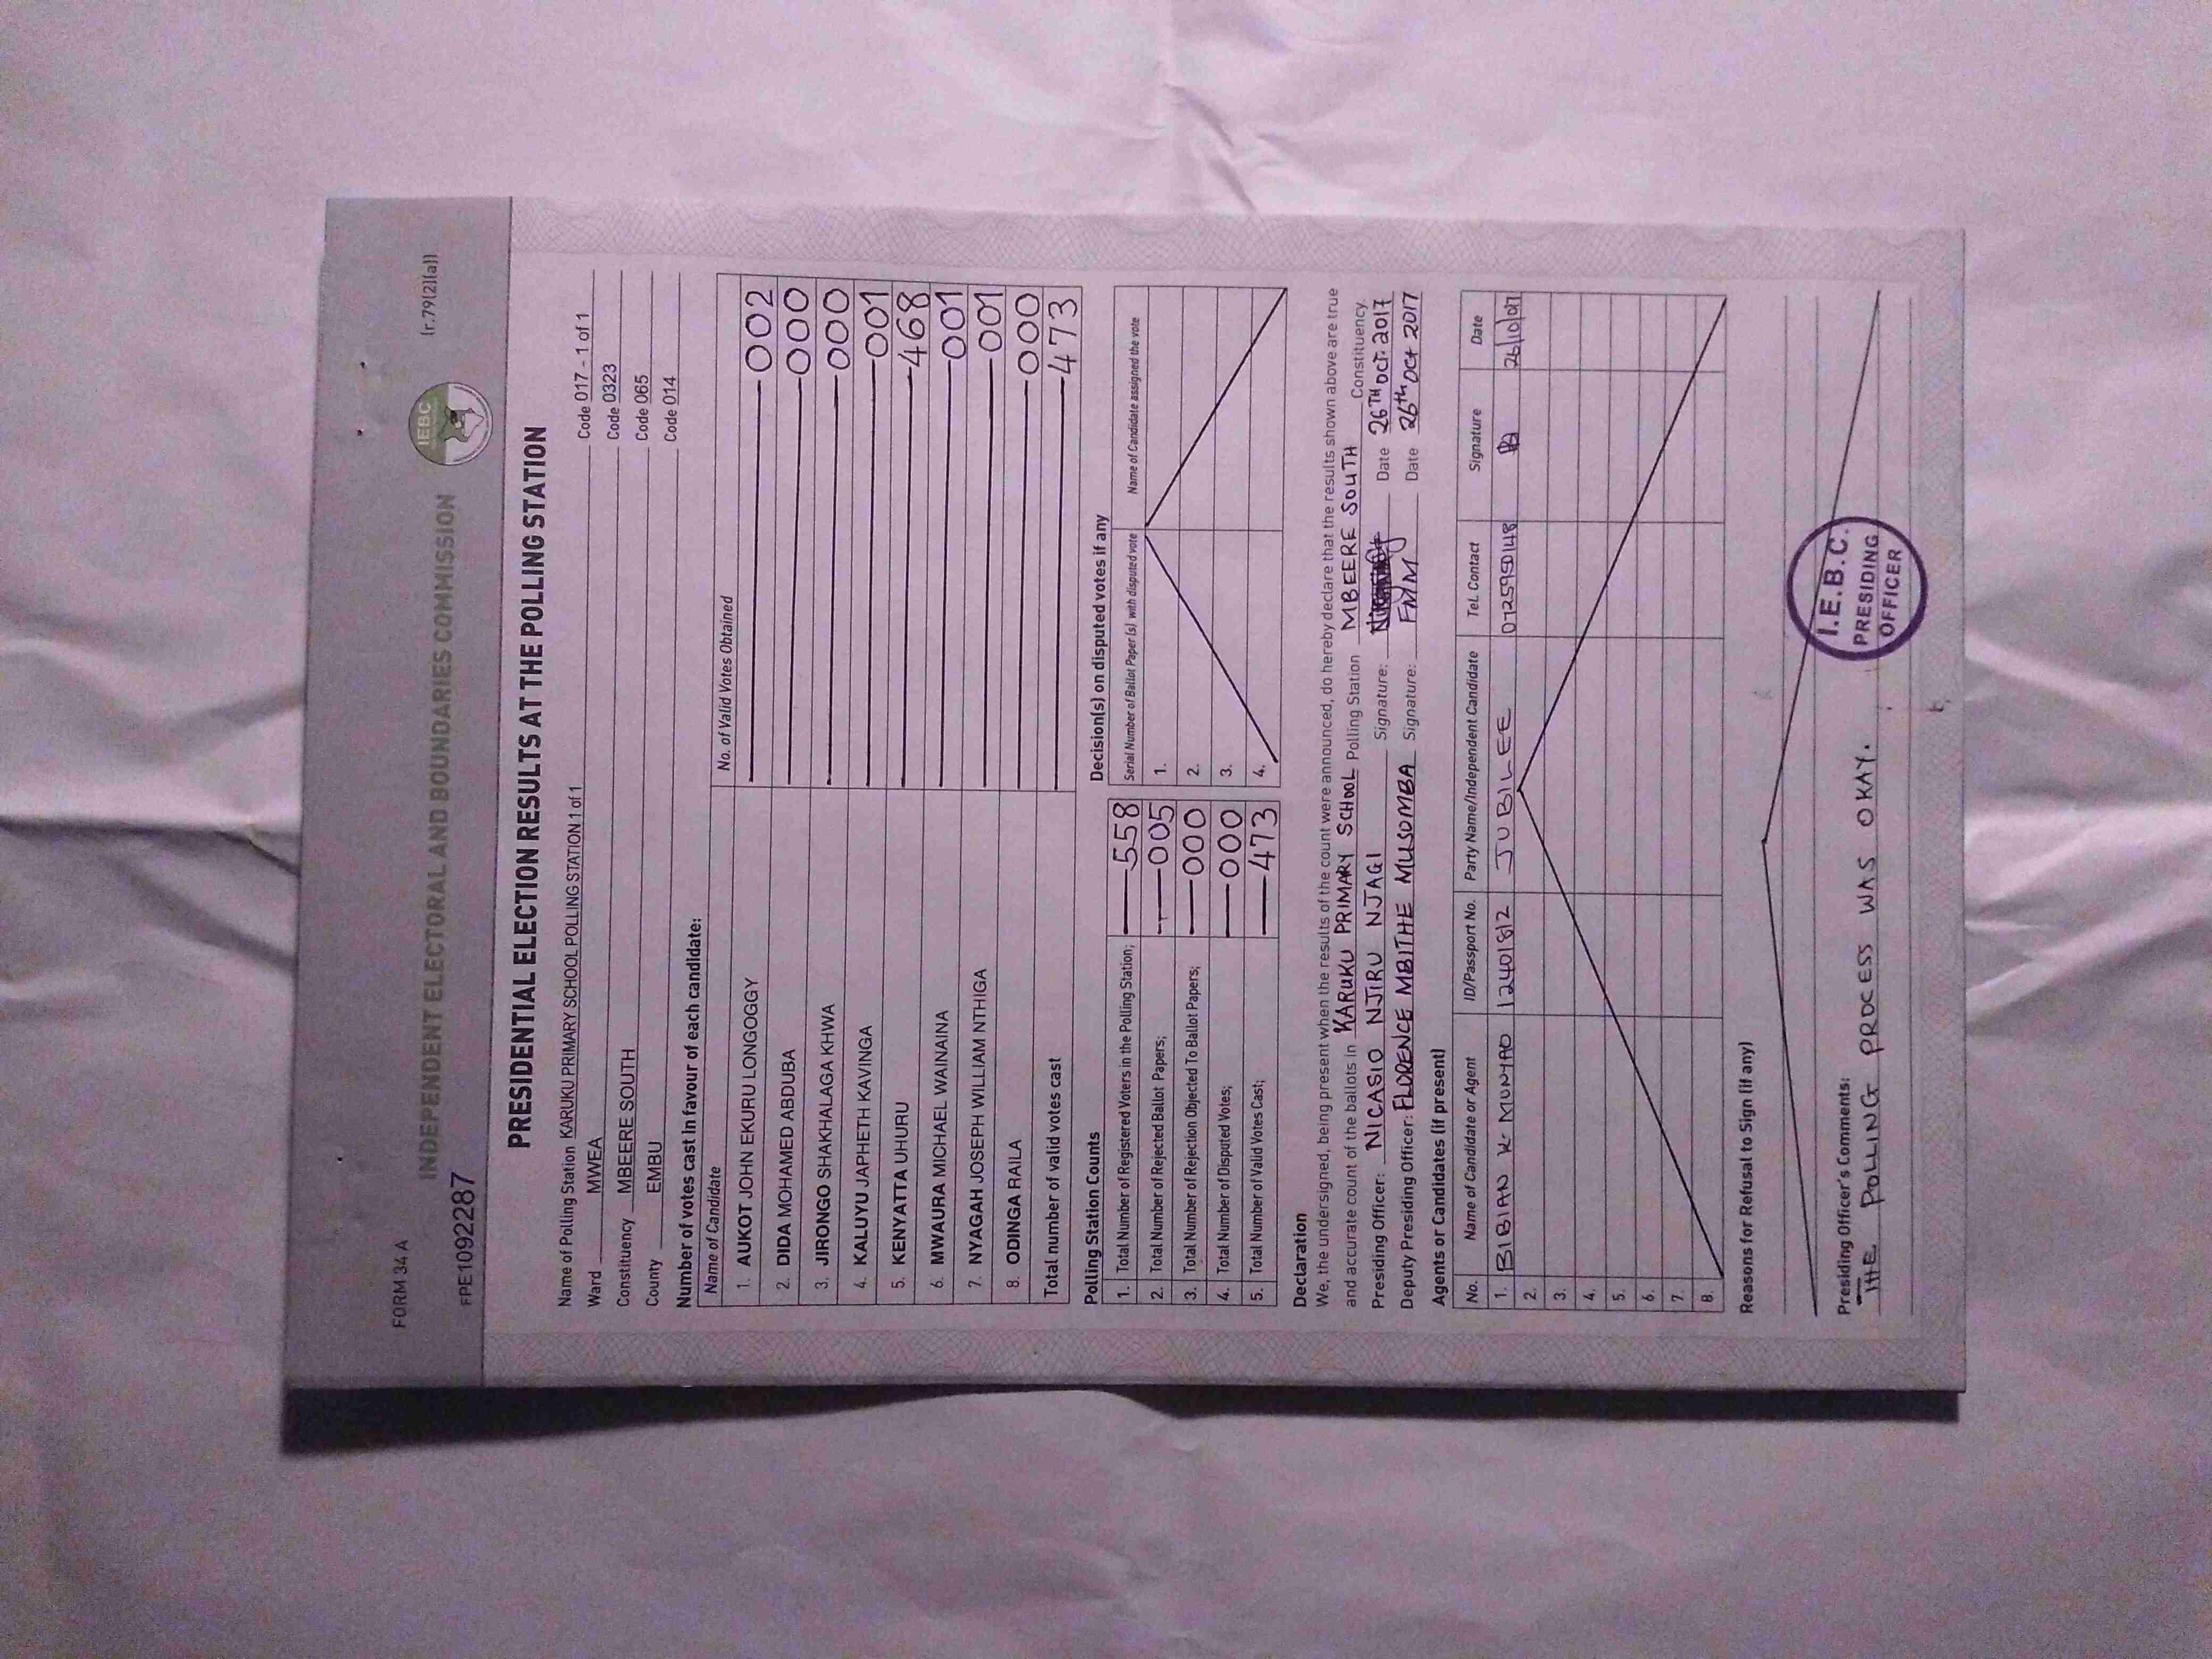 FORM 34 A
(r.79(2)(a))
INDEPENDENT ELECTORAL AND BOUNDARIES COMMISSION
IEBC
FPE1092287
PRESIDENTIAL ELECTION RESULTS AT THE POLLING STATION
Name of Polling Station KARUKU PRIMARY SCHOOL POLLING STATION 1 of 1 Code 017 - 1 of 1
Ward MWEA Code 0323
Constituency MBEERE SOUTH Code 065
County EMBU Code 014
Number of votes cast in favour of each candidate:
Name of Candidate No. of Valid Votes Obtained
1. AUKOT JOHN EKURU LONGOGGY 002
2. DIDA MOHAMED ABDUBA 000
3. JIRONGO SHAKHALAGA KHWA 000
4. KALUYU JAPHETH KAVINGA 001
5. KENYATTA UHURU 468
6. MWAURA MICHAEL WAINAINA 001
7. NYAGAH JOSEPH WILLIAM NTHIGA 001
8. ODINGA RAILA 000
Total number of valid votes cast 473
Polling Station Counts
1. Total Number of Registered Voters in the Polling Station; 558
2. Total Number of Rejected Ballot Papers; 005
3. Total Number of Rejection Objected To Ballot Papers; 000
4. Total Number of Disputed Votes; 000
5. Total Number of Valid Votes Cast; 473
Decision(s) on disputed votes if any
Serial Number of Ballot Paper (s) with disputed vote Name of Candidate assigned the vote
1.
2.
3.
4.
Declaration
We, the undersigned, being present when the results of the count were announced, do hereby declare that the results shown above are true
and accurate count of the ballots in KARUKU PRIMARY SCHOOL Polling Station MBEERE SOUTH Constituency.
Presiding Officer: NICASIO NJIRU NJAGI Signature: Date 26TH OCT. 2017
Deputy Presiding Officer: FLORENCE MBITHE MUSOMBA Signature: FMM Date 26th OCT 2017
Agents or Candidates (if present)
No. Name of Candidate or Agent ID/Passport No. Party Name/Independent Candidate Tel. Contact Signature Date
1. BIBIAN K MUNYAO 12401812 JUBILEE 0725950148 26/10/017
2.
3.
4.
5.
6.
7.
8.
Reasons for Refusal to Sign (if any)
Presiding Officer's Comments:
THE POLLING PROCESS WAS OKAY.
I.E.B.C.
PRESIDING
OFFICER